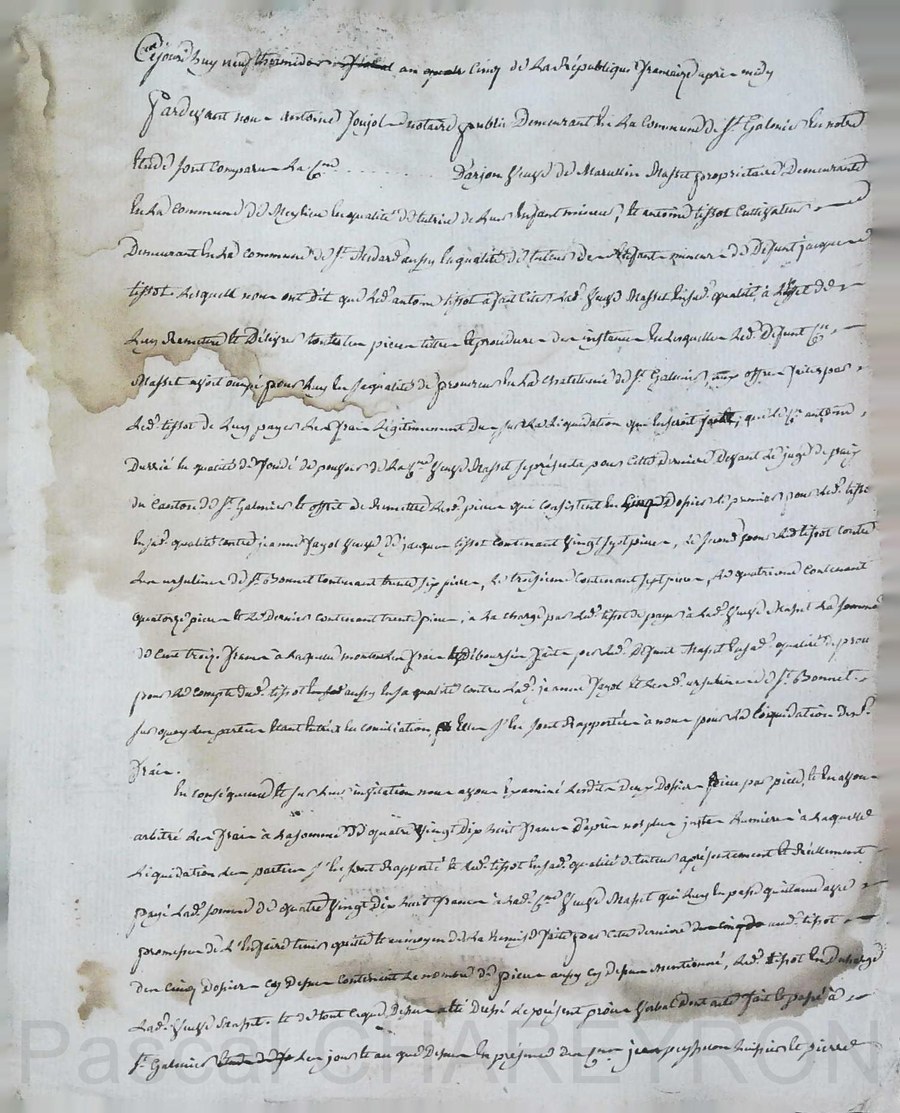 Cejourd'huy neuf thermidor an cinq de La République française après midy
Pardevant nous Antoine Joujol Notaire public Demeurant En La Commune de St Galmier En notre
étude sont comparu La Cne Darjon Veuve de Marcellin Masset propriétaire Demeurante
En La Commune de Meylieu En qualité de tutrice de Leurs Enfant mineurs, Et antoine tissot Cultivateur
Demeurant En La Commune de St Medard aussy En qualité de tuteur des Enfants mineurs de Deffunt jacques
tissot Lesquels nous ont Dit que Led. antoine tissot a fait citer Lad. Veuve Masset En sad. qualité, à L'effet de
Luy Remettre Et Délivrer toutes Les pieces titres Et procedures des instances En Lesquelles Led. Defunt Cen
Masset a été occupé pour Luy En sa qualité de procureur En La Chatelenie de St Galmier, aux offres faites par
Led. tissot de Luy payer Les frais Légitimement Dus sur La Liquidation qui En seroit faitte, que Le Cen antoine
Durrié En qualité de fondé de pouvoir de La Cne Veuve Masset se présenta pour Cette Derniere Devant Le juge de paix
du Canton de St Galmier Et offrit de Remettre Lesd. pieces qui consistent En Cinq Dossiers Le premier pour Led. tissot
En sad. qualité contre jeanne fayol Veuve de jacques tissot Contenant Vingt sept pieces, Le second pour Led. tissot Contre
Les ursulines de St Bonnet Contenant trente six pieces, Le troisieme Contenant sept pieces, Le quatrieme Contenant
quatorze pieces Et Le Dernier contenant trente pieces, à La charge par Led. tissot de payer à Lad. Veuve Masset La somme
de Cent treize francs à Laquelle montent Les frais Et Déboursés faits par Led. Défunt Masset En sad. qualité de proc
pour Le Compte dud. tissot aussy En sa qualité contre Lad. jeanne fayol Et Lesd. ursulines de St Bonnet
sur quoy Les parties Etant Entrées En conciliation, Elles s'En sont Rapportées à nous pour La Liquidation Desd.
frais.
En conséquence Et sur Leur invitation nous avons Examiné Lesdits Deux Dossiers piece par piece, Et En avons
arbitré Les frais à La somme de quatre Vingt Dix huit francs D'après nos plus justes Lumieres à Laquelle
Liquidation Les parties s'En sont Rapporté Et Led. tissot En sad. qualité de tuteur a présentement Et Réellement
payé Lad. somme de quatre Vingt Dix huit francs à Lad. Cne Veuve Masset qui Luy En passe quittance avec
promesse de L'En faire tenir quitte Et au moyen de La Remise faite par Cette derniere aud. tissot
des Cinq Dossiers Cy Dessus Contenant Le nombre de pieces aussy Cy Dessus Mentionné, Led. tissot En Decharge
Lad. Veuve Masset. Et de tout Ce que Dessus a été Dressé Le présent procès Verbal Dont acte fait Et passé à
St Galmier Les jour Et an que Dessus En présence des Cens jean peysson huissier Et pierre
Pascal CHAREYRON